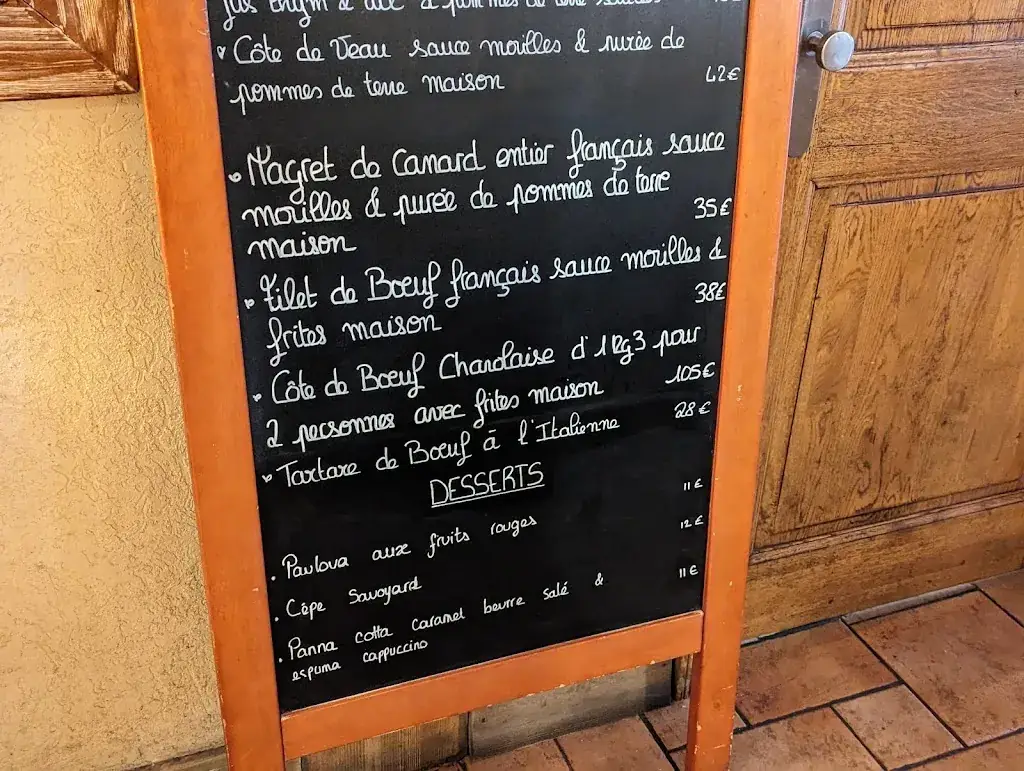 pommes de terre
• Côte de Veau sauce morilles & purée de
pommes de terre maison 42€
• Magret de Canard entier français sauce
morilles & purée de pommes de terre
maison 35€
• Filet de Boeuf français sauce morilles &
frites maison 38€
• Côte de Boeuf Charolaise d'1kg3 pour
2 personnes avec frites maison 105€
• Tartare de Boeuf à l'Italienne 28€
DESSERTS
• Pavlova aux fruits rouges 11€
• Cèpe Savoyard 12€
• Panna cotta caramel beurre salé & 11€
espuma cappuccino